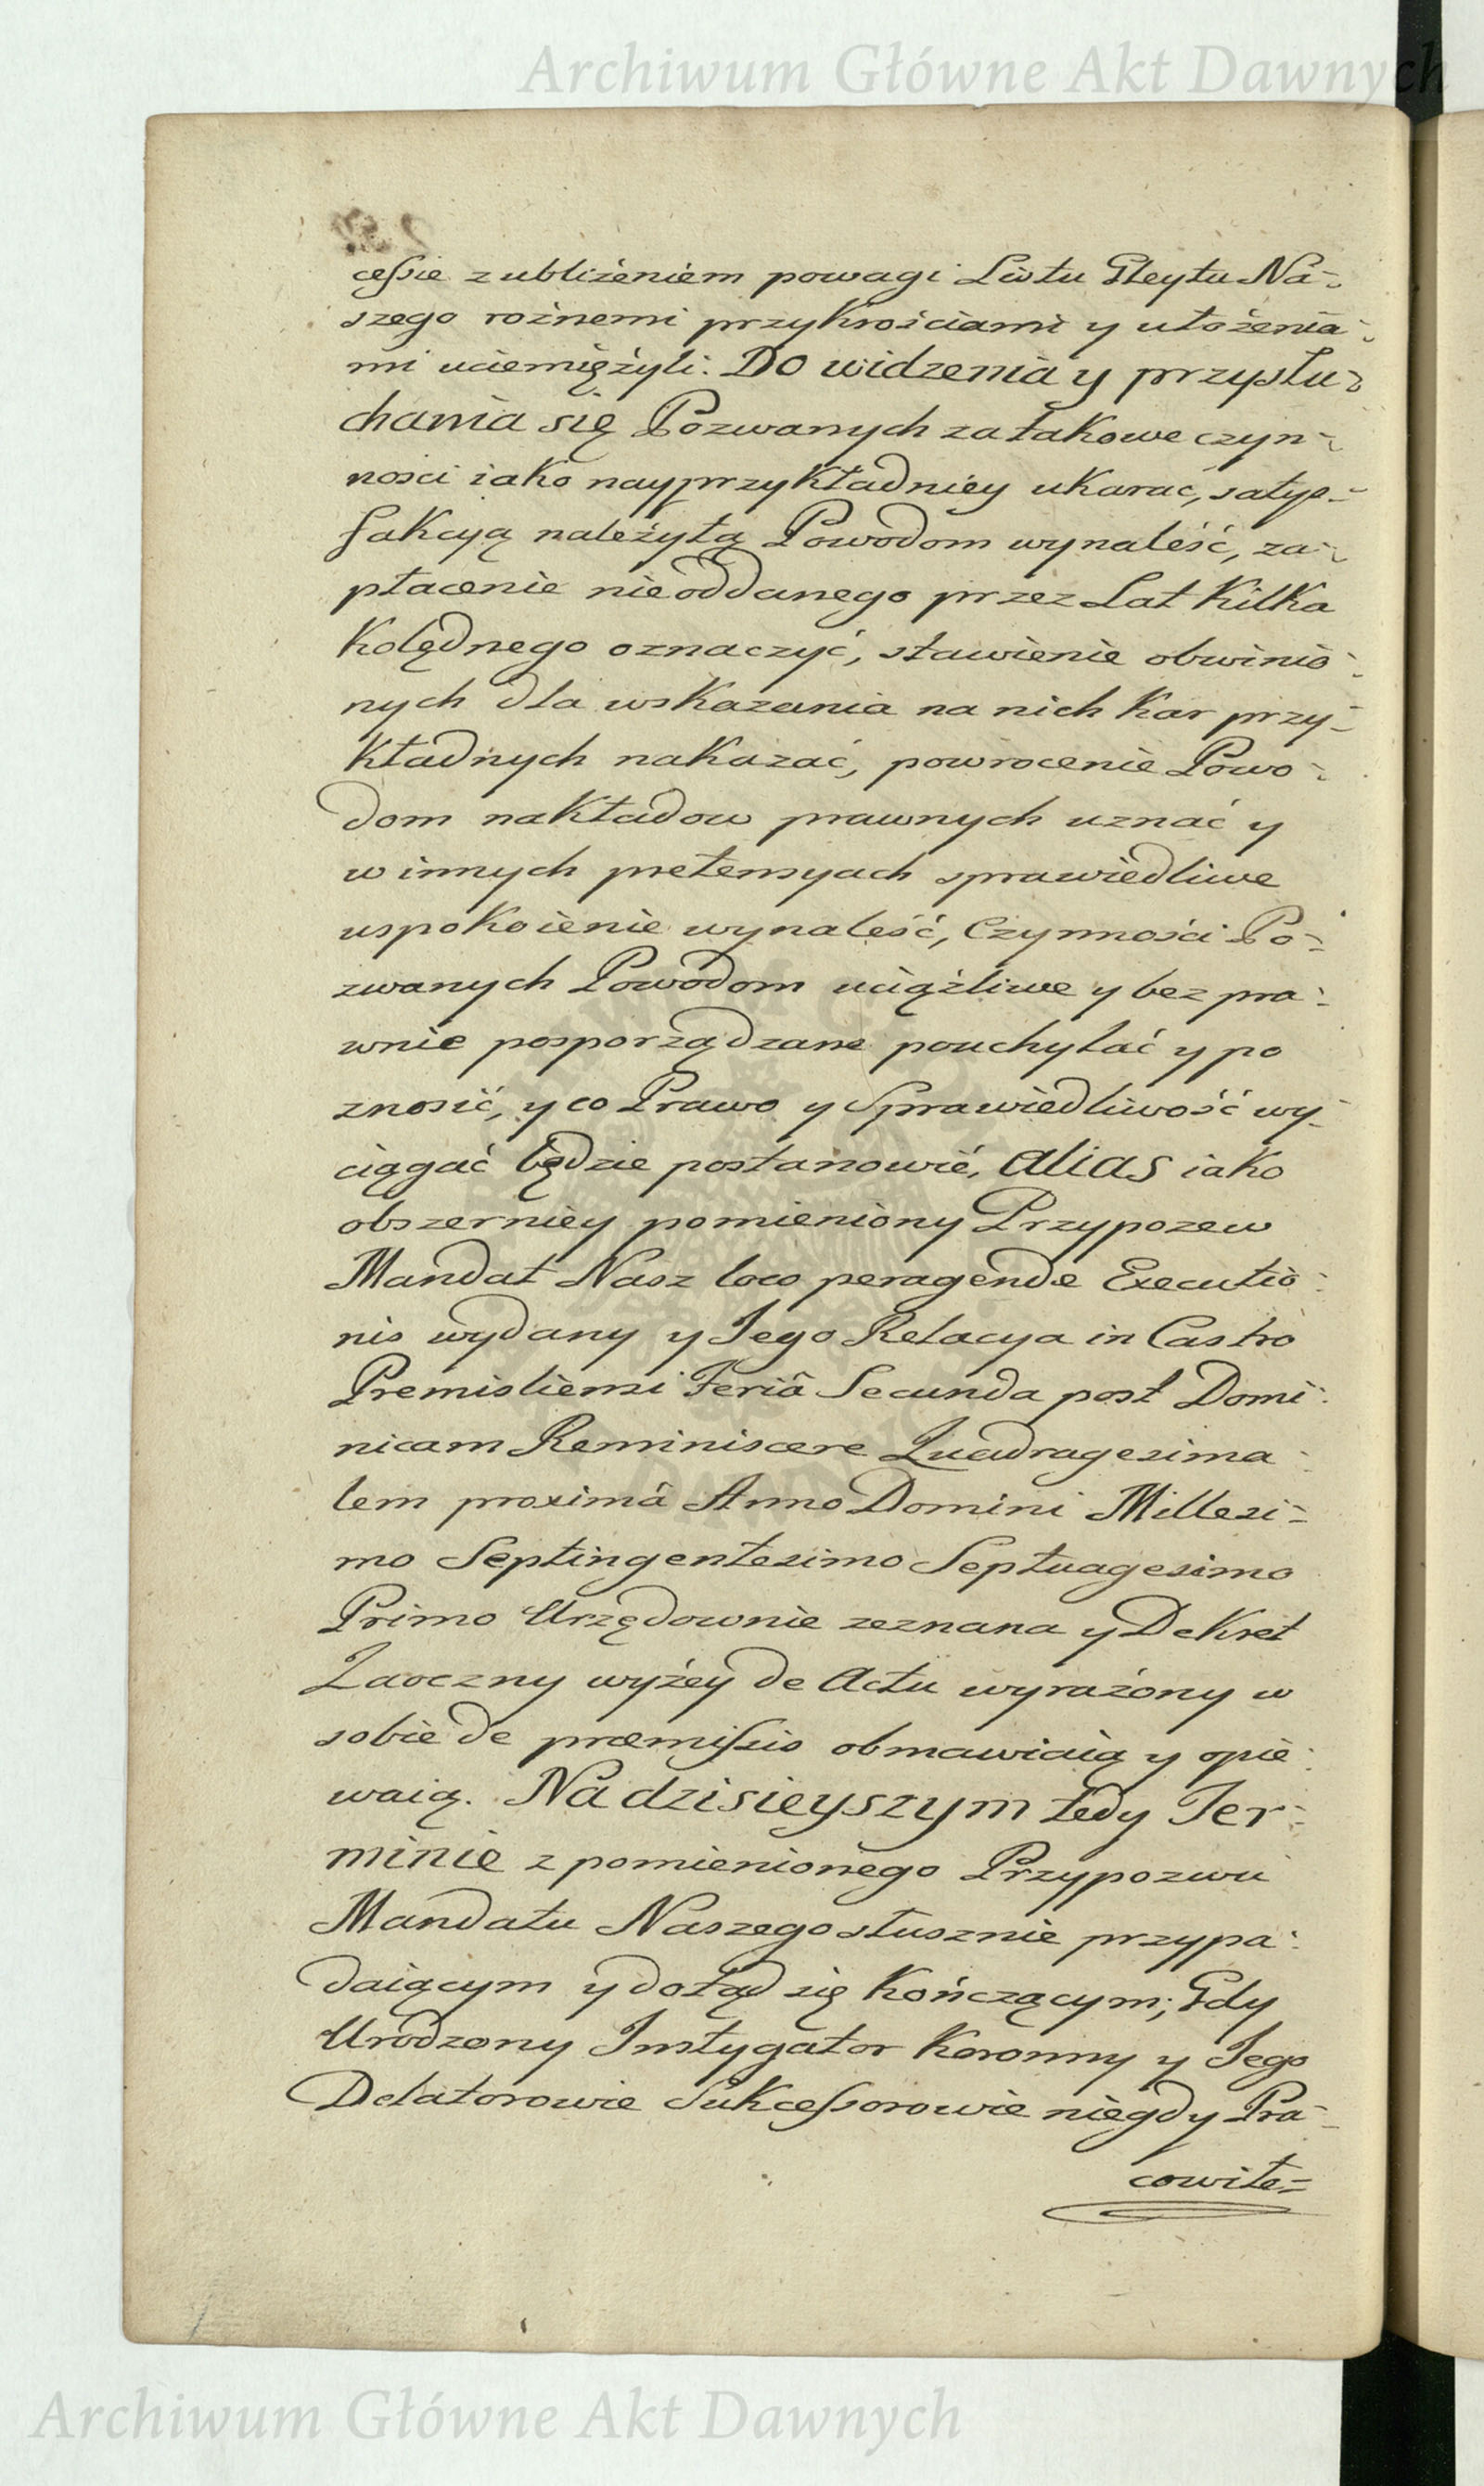 Archiwum Główne Akt Dawnych
cessie z ubliżeniem powagi Listu Gleytu Na-
szego rożnemi przykrościami y ułożenia-
mi uciemiężyli. Do widzenia y przysłu-
chania się Pozwanych za takowe czyn-
ności iako nayprzykładniey ukarać, satys-
fakcyą należytą Powodom wynaleść, za-
płacenie nieoddanego przez Lat kilka
Kolędnego oznaczyć, stawienie obwinio-
nych dla wskazania na nich kar przy-
kładnych nakazać, powrocenie Powo-
dom nakładow prawnych uznać y
w innych pretensyach sprawiedliwe
uspokoienie wynaleść, Czynności Po-
zwanych Powodom uciążliwe y bez pra-
wnie posporządzane pouchylać y po
znosić, y co Prawo y Sprawiedliwość wy-
ciągać będzie postanowić, alias iako
obszerniey pomieniony Przypozew
Mandat Nasz loco peragendæ Executio-
nis wydany y Jego Relacya in Castro
Premisliensi Feriâ Secunda post Domi-
nicam Reminiscere Quadragesima-
lem proximâ Anno Domini Millesi-
mo Septingentesimo Septuagesimo
Primo Urzędownie zeznana y Dekret
Zaoczny wyżey de Actu wyrażony w
sobie de præmissis obmawiaią y opie-
waią. Na dzisieyszym tedy Ter-
minie z pomienionego Przypozwu
Mandatu Naszego słusznie przypa-
daiącym y dotąd się kończącym; Gdy
Urodzony Instygator Koronny y Jego
Delatorowie Sukcessorowie niegdy Pra-
cowite-
Archiwum Główne Akt Dawnych